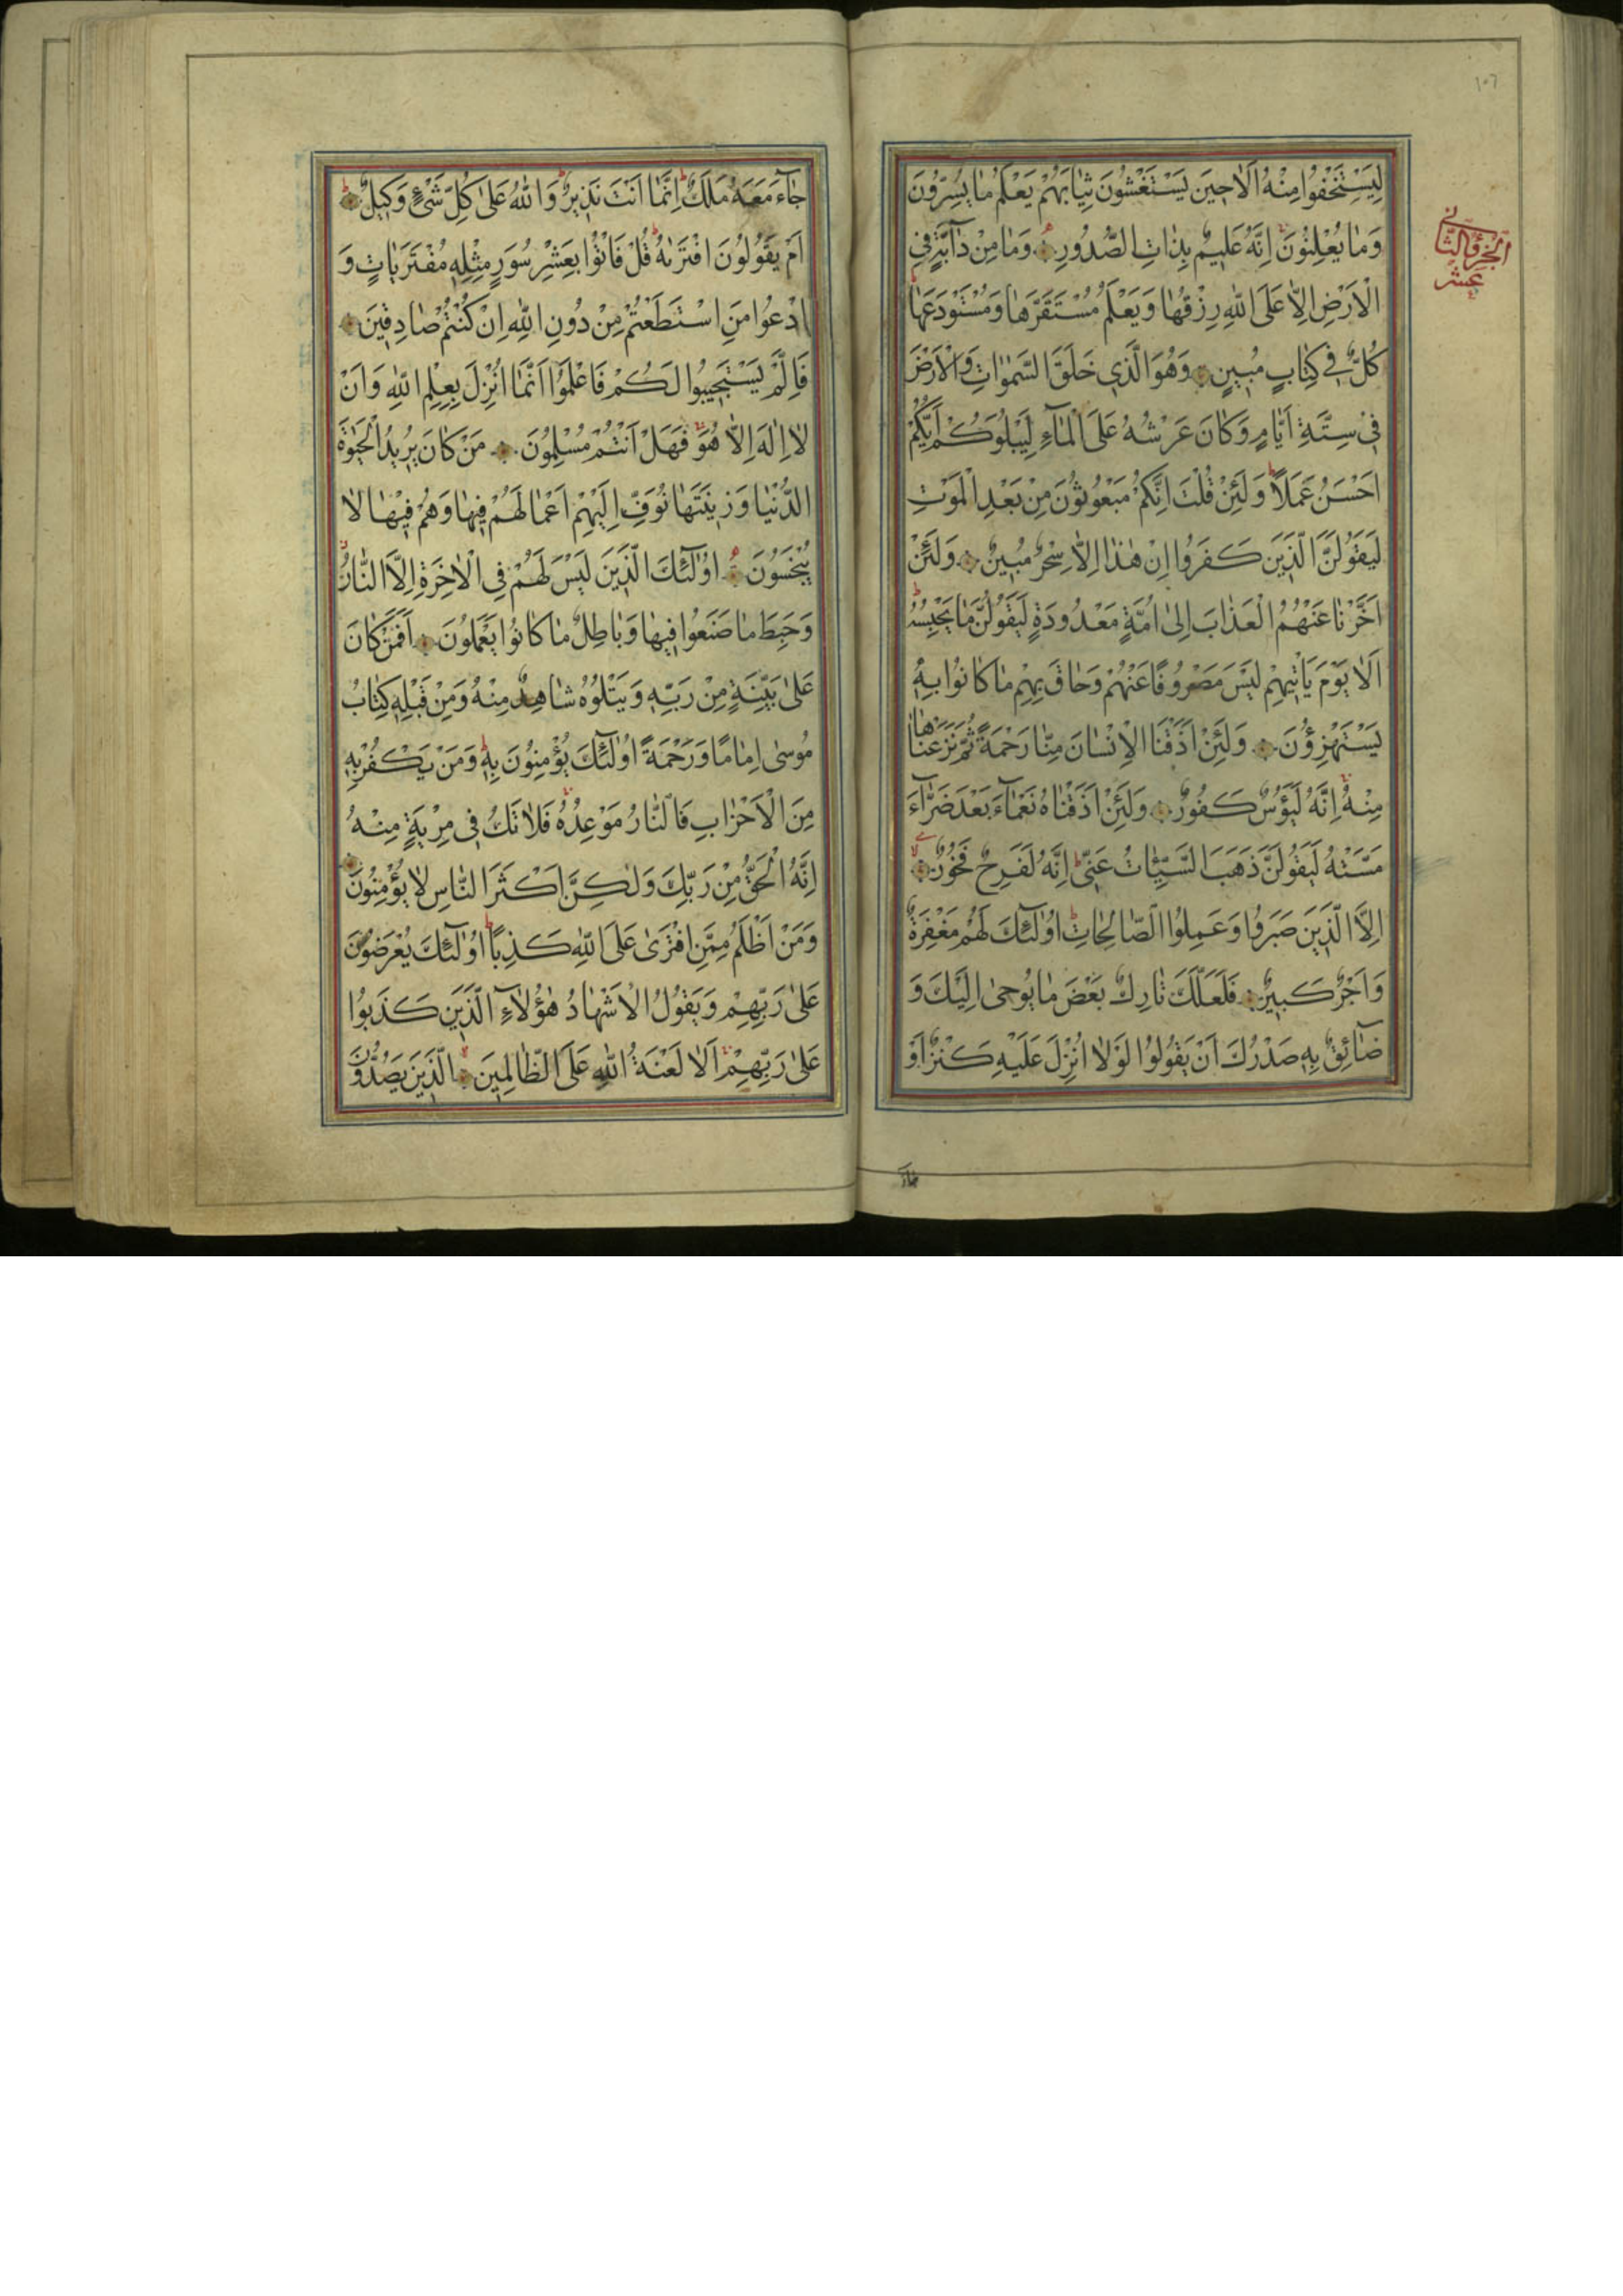 ١٠٦
الجزؤ الثانى
عشر
لِيَسْتَخْفُوا مِنْهُ اَلَا حِينَ يَسْتَغْشُونَ ثِيَابَهُمْ يَعْلَمُ مَا يُسِرُّونَ
وَمَا يُعْلِنُونَ اِنَّهُ عَلِيمٌ بِذَاتِ الصُّدُورِ وَمَا مِنْ دَآبَّةٍ فِى
الْاَرْضِ اِلَّا عَلَى اللهِ رِزْقُهَا وَيَعْلَمُ مُسْتَقَرَّهَا وَمُسْتَوْدَعَهَا
كُلٌّ فِى كِتَابٍ مُبِينٍ وَهُوَ الَّذِى خَلَقَ السَّمٰوَاتِ وَالْاَرْضَ
فِى سِتَّةِ اَيَّامٍ وَكَانَ عَرْشُهُ عَلَى الْمَآءِ لِيَبْلُوَكُمْ اَيُّكُمْ
اَحْسَنُ عَمَلًا وَلَئِنْ قُلْتَ اِنَّكُمْ مَبْعُوثُونَ مِنْ بَعْدِ الْمَوْتِ
لَيَقُولَنَّ الَّذِينَ كَفَرُوا اِنْ هٰذَا اِلَّا سِحْرٌ مُبِينٌ وَلَئِنْ
اَخَّرْنَا عَنْهُمُ الْعَذَابَ اِلٰى اُمَّةٍ مَعْدُودَةٍ لَيَقُولُنَّ مَا يَحْبِسُهُ
اَلَا يَوْمَ يَاْتِيهِمْ لَيْسَ مَصْرُوفًا عَنْهُمْ وَحَاقَ بِهِمْ مَا كَانُوا بِهِ
يَسْتَهْزِؤُنَ وَلَئِنْ اَذَقْنَا الْاِنْسَانَ مِنَّا رَحْمَةً ثُمَّ نَزَعْنَاهَا
مِنْهُ اِنَّهُ لَيَؤُسٌ كَفُورٌ وَلَئِنْ اَذَقْنَاهُ نَعْمَآءَ بَعْدَ ضَرَّآءَ
مَسَّتْهُ لَيَقُولَنَّ ذَهَبَ السَّيِّئَاتُ عَنِّى اِنَّهُ لَفَرِحٌ فَخُورٌ
اِلَّا الَّذِينَ صَبَرُوا وَعَمِلُوا الصَّالِحَاتِ اُولٰٓئِكَ لَهُمْ مَغْفِرَةٌ
وَاَجْرٌ كَبِيرٌ فَلَعَلَّكَ تَارِكٌ بَعْضَ مَا يُوحٰى اِلَيْكَ وَ
ضَآئِقٌ بِهِ صَدْرُكَ اَنْ يَقُولُوا لَوْلَا اُنْزِلَ عَلَيْهِ كَنْزٌ اَوْ
جَآءَ
جَآءَ مَعَهُ مَلَكٌ اِنَّمَا اَنْتَ نَذِيرٌ وَاللهُ عَلٰى كُلِّ شَىْءٍ وَكِيلٌ
اَمْ يَقُولُونَ افْتَرٰيهُ قُلْ فَاْتُوا بِعَشْرِ سُوَرٍ مِثْلِهِ مُفْتَرَيَاتٍ وَ
ادْعُوا مَنِ اسْتَطَعْتُمْ مِنْ دُونِ اللهِ اِنْ كُنْتُمْ صَادِقِينَ
فَاِلَّمْ يَسْتَجِيبُوا لَكُمْ فَاعْلَمُوا اَنَّمَا اُنْزِلَ بِعِلْمِ اللهِ وَاَنْ
لَا اِلٰهَ اِلَّا هُوَ فَهَلْ اَنْتُمْ مُسْلِمُونَ مَنْ كَانَ يُرِيدُ الْحَيٰوةَ
الدُّنْيَا وَزِينَتَهَا نُوَفِّ اِلَيْهِمْ اَعْمَالَهُمْ فِيهَا وَهُمْ فِيهَا لَا
يُبْخَسُونَ اُولٰٓئِكَ الَّذِينَ لَيْسَ لَهُمْ فِى الْاٰخِرَةِ اِلَّا النَّارُ
وَحَبِطَ مَا صَنَعُوا فِيهَا وَبَاطِلٌ مَا كَانُوا يَعْمَلُونَ اَفَمَنْ كَانَ
عَلٰى بَيِّنَةٍ مِنْ رَبِّهِ وَيَتْلُوهُ شَاهِدٌ مِنْهُ وَمِنْ قَبْلِهِ كِتَابُ
مُوسٰى اِمَامًا وَرَحْمَةً اُولٰٓئِكَ يُؤْمِنُونَ بِهِ وَمَنْ يَكْفُرْ بِهِ
مِنَ الْاَحْزَابِ فَالنَّارُ مَوْعِدُهُ فَلَا تَكُ فِى مِرْيَةٍ مِنْهُ
اِنَّهُ الْحَقُّ مِنْ رَبِّكَ وَلٰكِنَّ اَكْثَرَ النَّاسِ لَا يُؤْمِنُونَ
وَمَنْ اَظْلَمُ مِمَّنِ افْتَرٰى عَلَى اللهِ كَذِبًا اُولٰٓئِكَ يُعْرَضُونَ
عَلٰى رَبِّهِمْ وَيَقُولُ الْاَشْهَادُ هٰؤُلَآءِ الَّذِينَ كَذَبُوا
عَلٰى رَبِّهِمْ اَلَا لَعْنَةُ اللهِ عَلَى الظَّالِمِينَ الَّذِينَ يَصُدُّونَ